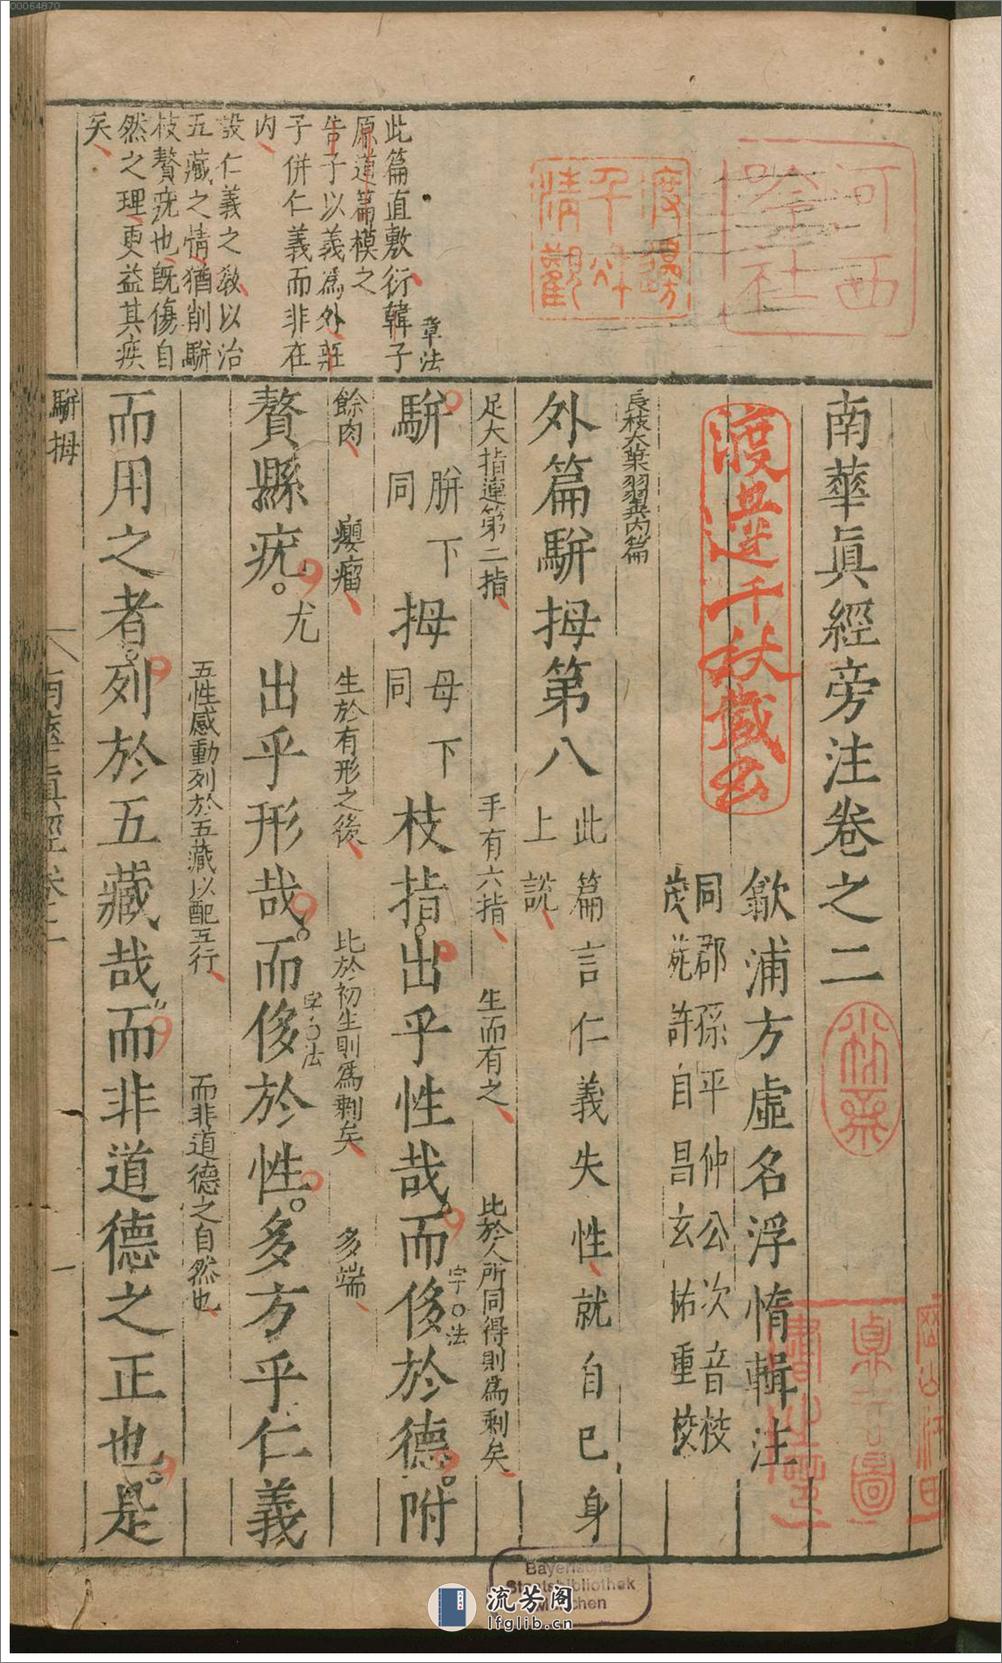 00064870
南華眞經旁注卷之二
歙浦方虛名浮惰輯注
同郡孫平仲公次音校
茂苑許自昌玄祐重校
長枝大葉羽翼內篇
外篇駢拇第八
此篇言仁義失性就自已身
上說
足大指連第二指
手有六指
生而有之
比於人所同得則爲剩矣
駢
胼下
同
拇
母下
同
枝指出乎性哉而侈於德附
字句法
餘肉
癭瘤
生於有形之後
比於初生則爲剩矣
多端
贅縣疣
尤
出乎形哉而侈於性多方乎仁義
字句法
五性感動列於五藏以配五行
而非道德之自然也
而用之者列於五藏哉而非道德之正也是
章法
此篇直敷衍韓子
原道篇模之
告子以義爲外莊
子併仁義而非在
內
設仁義之教以治
五藏之情猶削駢
枝贅疣也旣傷自
然之理更益其疾
矣
駢拇
南華眞經卷二
一
河西
吟社
渡邊千秋藏書
Bayerische
Staatsbibliothek
München
流芳阁
lfglib.cn